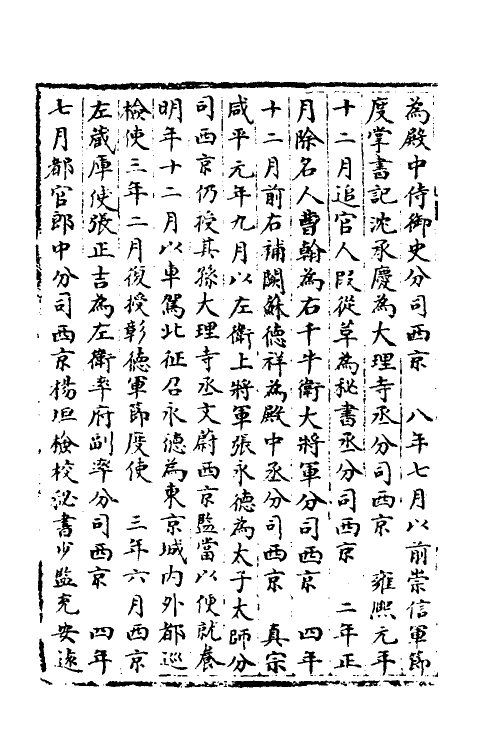 為殿中侍御史分司西京　八年七月以前崇信軍節
度掌書記沈承慶為大理寺丞分司西京　雍熙元年
十二月追官人段從革為秘書丞分司西京　二年正
月除名人曹翰為右千牛衛大將軍分司西京　四年
十二月前右補闕蘇德祥為殿中丞分司西京　真宗
咸平元年九月以左衛上將軍張永德為太子太師分
司西京仍授其孫大理寺丞文蔚西京監當以便就養
明年十二月以車駕北征召永德為東京城内外都巡
檢使三年二月復授彰德軍節度使　三年六月西京
左蔵庫使張正吉為左衛率府副率分司西京　四年
七月都官郎中分司西京楊㤆檢校秘書少監充安遠